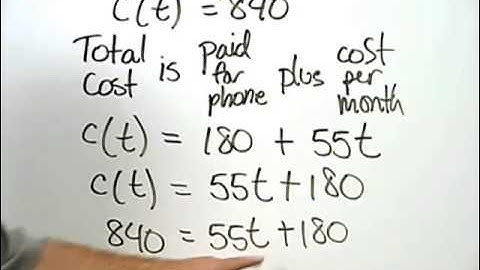 C(t) = 840
Total Cost is paid for phone plus cost per month
C(t) = 180 + 55t
C(t) = 55t + 180
840 = 55t + 180